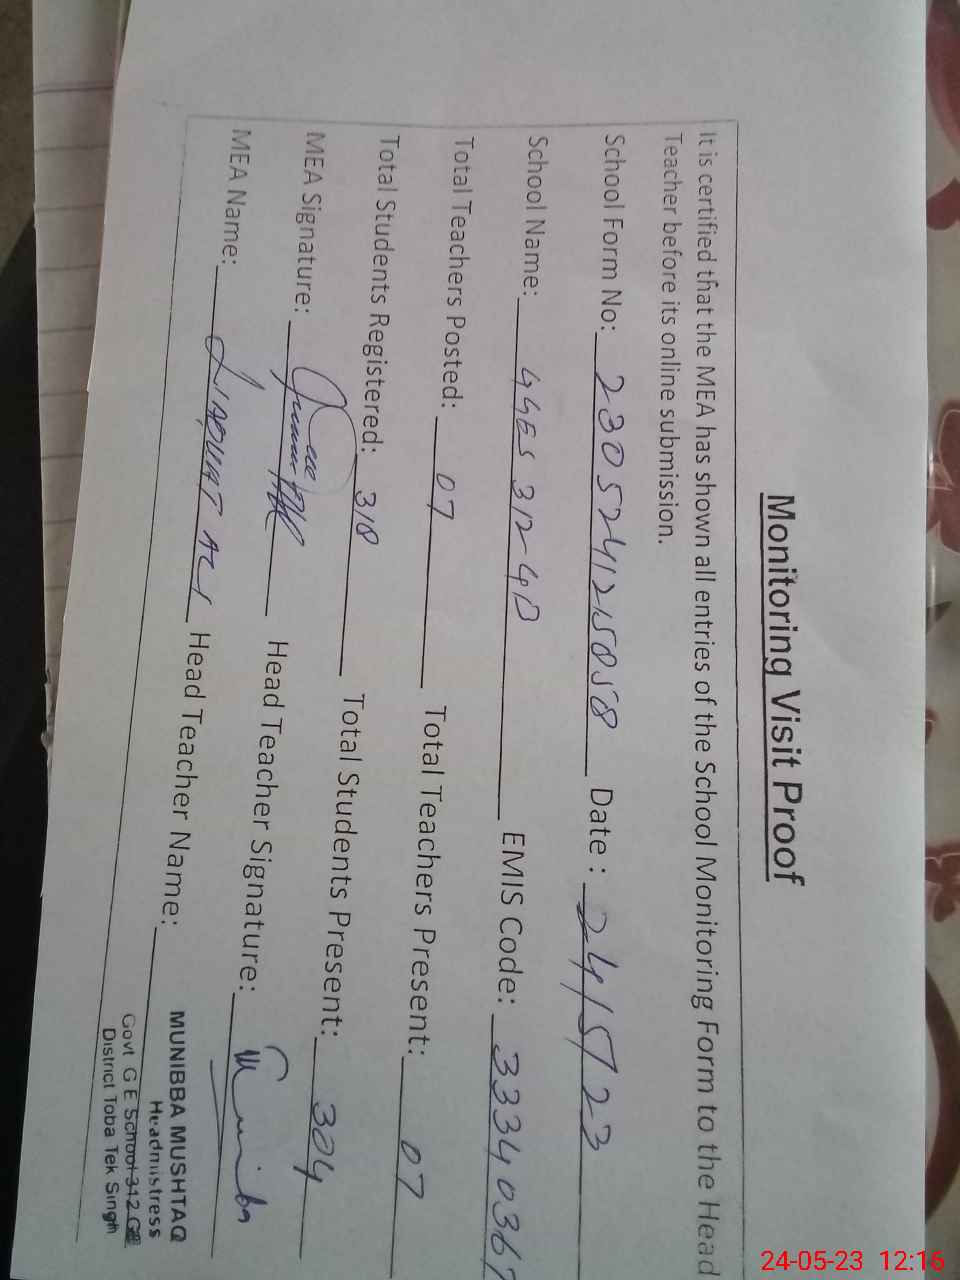 Monitoring Visit Proof
It is certified that the MEA has shown all entries of the School Monitoring Form to the Head
Teacher before its online submission.
School Form No: 230524125058 Date : 24/5/23
School Name: GGES 312 GB EMIS Code: 33340367
Total Teachers Posted: 07 Total Teachers Present: 07
Total Students Registered: 318 Total Students Present: 304
MEA Signature: Head Teacher Signature: Muniba
MEA Name: LIAQUAT ALI Head Teacher Name: MUNIBBA MUSHTAQ
Headmistress
Govt G E School 312 GB
District Toba Tek Singh
24-05-23 12:16